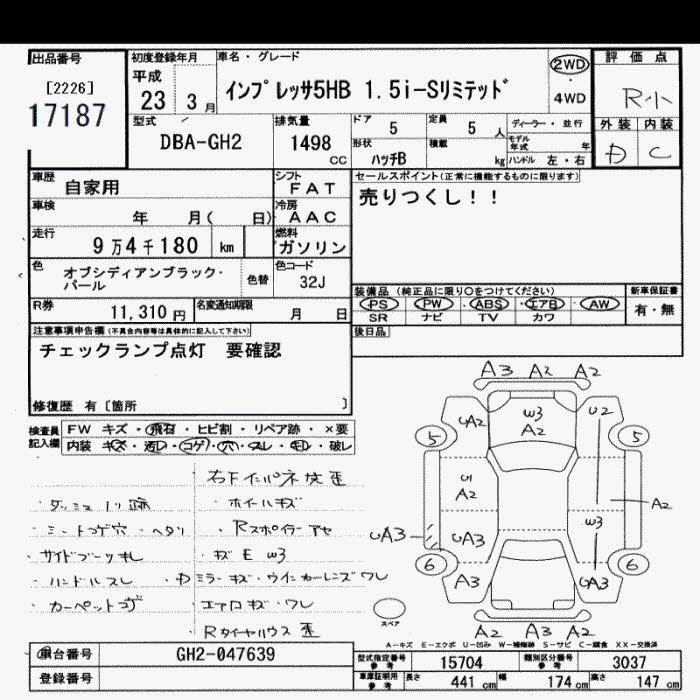 出品番号
[2226]
17187
初度登録年月
平成
23 3月
車名・グレード
インプレッサ5HB 1.5i-Sリミテッド
2WD
4WD
評価点
R小
外装 内装
D C
型式
DBA-GH2
排気量
1498
CC
ドア
5
定員
5人
形状
ハッチB
積載
kg
ディーラー・並行
モデル年式 年
ハンドル 左・右
車歴
自家用
シフト
FAT
車検
年 月( 日)
冷房
AAC
走行
9万4千180 km
燃料
ガソリン
色
オブシディアンブラック・パール
色替
色コード
32J
R券
11,310円
名変通知期限
月 日
セールスポイント(正常に機能するものに限ります)
売りつくし!!
装備品 (純正品に限り○をつけてください)
PS PW ABS エアB AW
SR ナビ TV カワ
新車保証書
有・無
後日品
注意事項申告欄(不具合内容等は具体的に記入して下さい)
チェックランプ点灯 要確認
修復歴 有〔箇所 〕
検査員記入欄
FW キズ・飛石・ヒビ割・リペア跡・×要
内装 キズ・汚レ・コゲ・穴・スレ・モレ・破レ
右下インパネ
・ホイールキズ
・Rスポイラー
・キズ E W3
・ミートコゲ穴・ヘタリ
・サイドブーツ
・ハンドルスレ
・カーペットコゲ
ミラーキズ・ウインカーレンズワレ
エアロキズ・ワレ
・Rタイヤハウス 歪
A3 A2 A2
UA2
W3
A2
U2
5
5
U1
A2
A2
W3
UA3
UA3
6
6
A3
UA3
スペア
A2 A3 A2
A-キズ E-エクボ U-凹み W-補修跡 S-サビ C-腐食 XX-交換済
車台番号
GH2-047639
登録番号
型式指定番号
参考
15704
類別区分番号
参考
3037
車庫証明用
参考
長さ
441 cm
幅
174 cm
高さ
147 cm